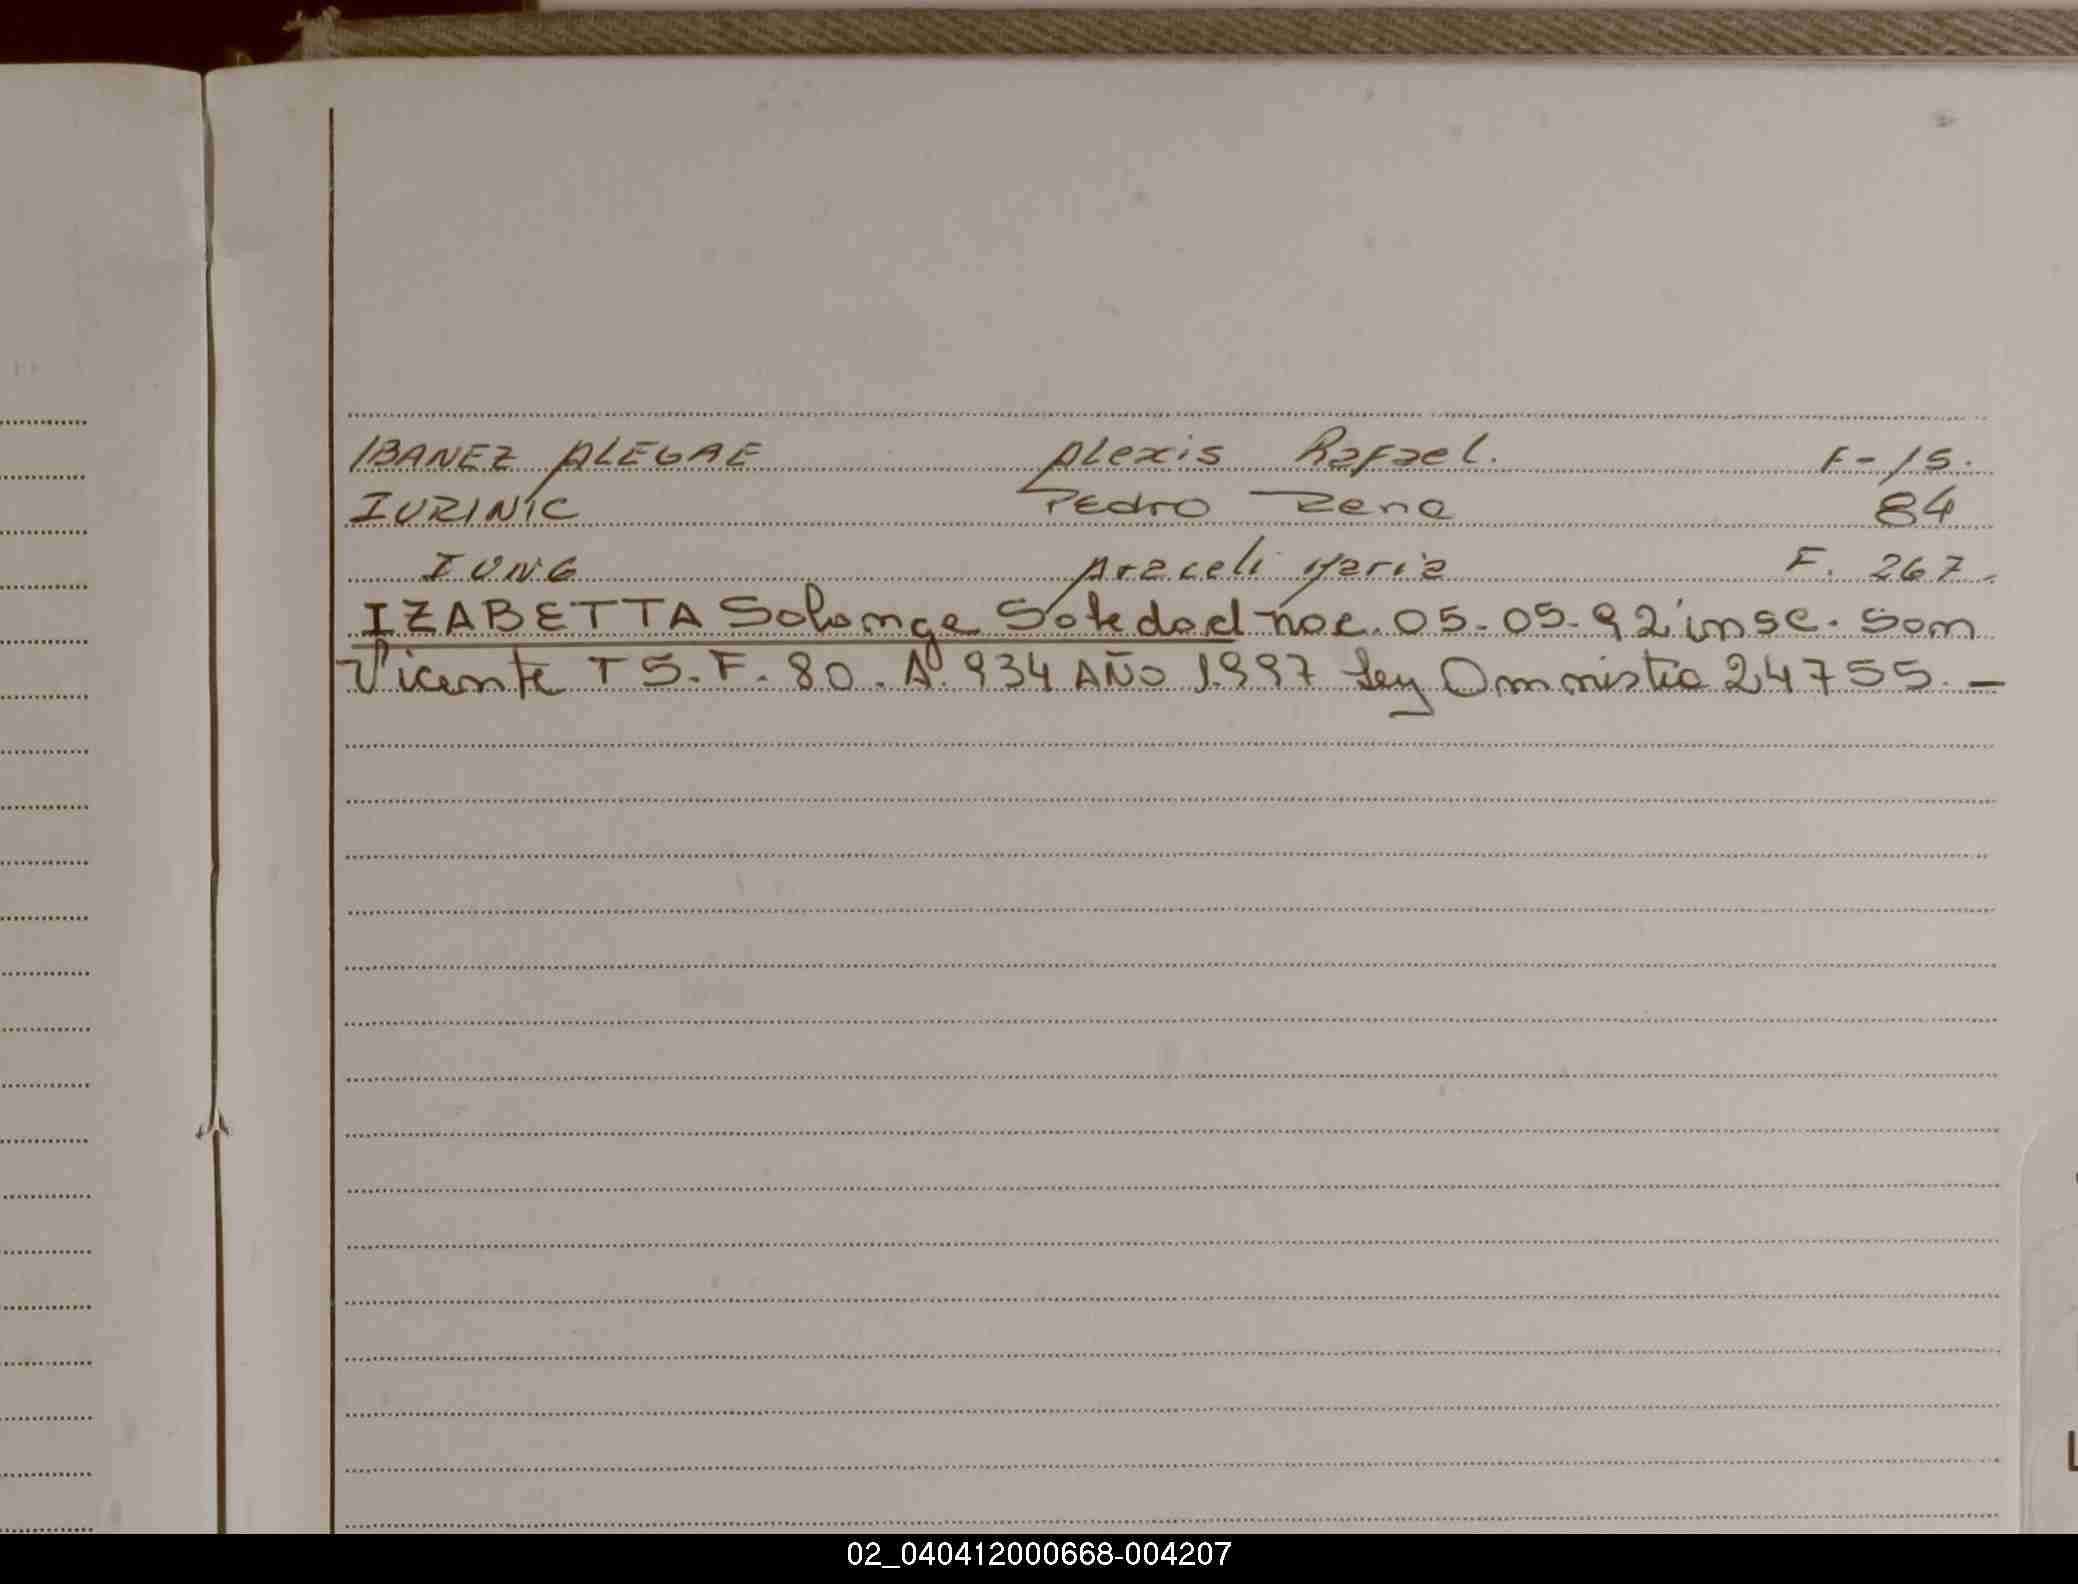 IBANEZ ALEGRE Alexis Rafael. F-15.
IURINIC Pedro Rene 84
IUNG Araceli Maria F. 267.
IZABETTA Solange Soledad nac. 05-05-92 insc. San
Vicente T 5. F. 80. A. 934 AÑO 1997 Ley Amnistia 24755. —
02_040412000668-004207